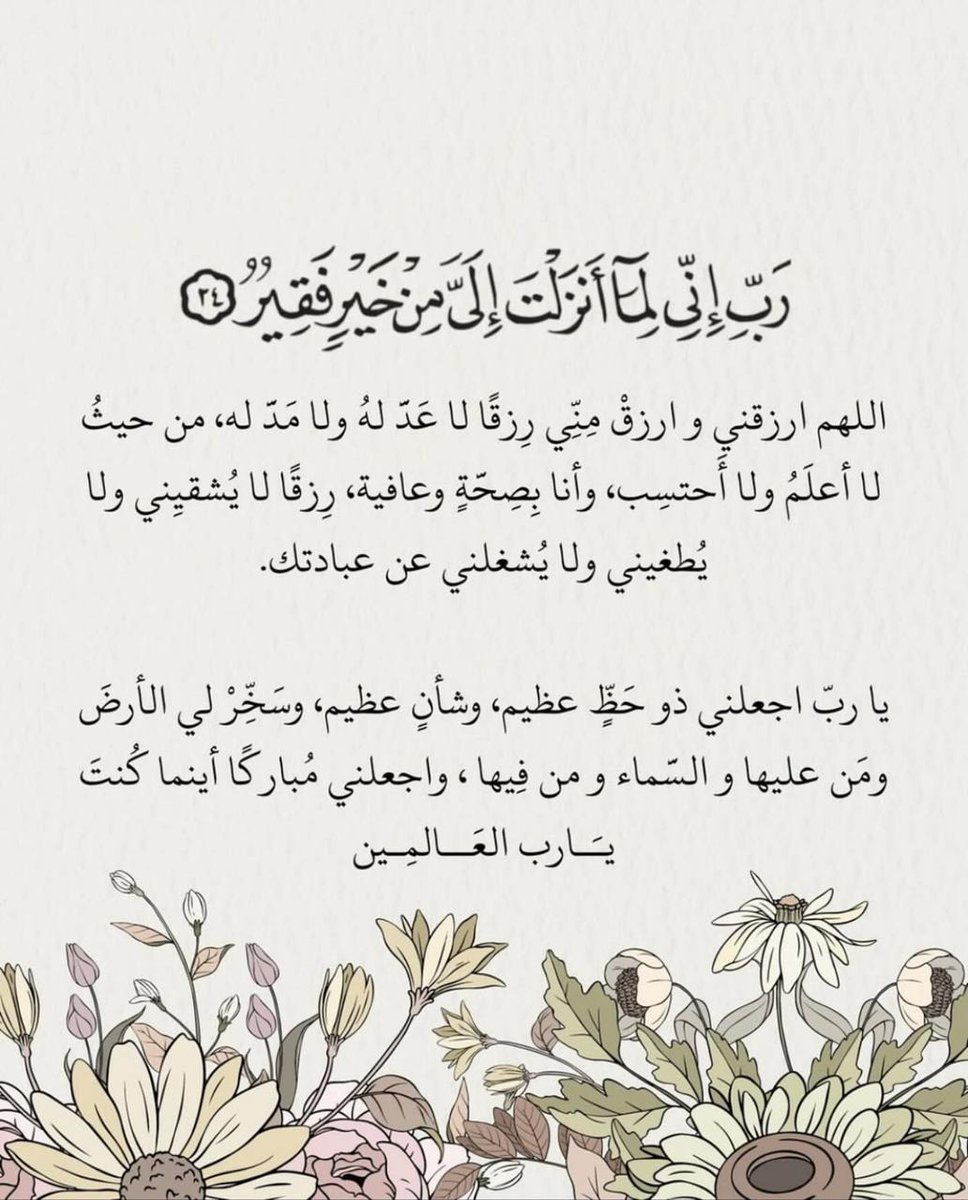 رَبِّ إِنِّى لِمَآ أَنزَلْتَ إِلَىَّ مِنْ خَيْرٍ فَقِيرٌ ٢٤
اللهم ارزقني و ارزقْ مِنِّي رِزقًا لا عَدّ لهُ ولا مَدّ له، من حيثُ
لا أعلَمُ ولا أَحتسِب، وأنا بِصِحّةٍ وعافية، رِزقًا لا يُشقيِني ولا
يُطغيني ولا يُشغلني عن عبادتك.
يا ربّ اجعلني ذو حَظٍّ عظيم، وشأنٍ عظيم، وسَخِّرْ لي الأرضَ
ومَن عليها و السّماء و من فِيها ، واجعلني مُباركًا أينما كُنتَ
يَــارب العَــالمِـين